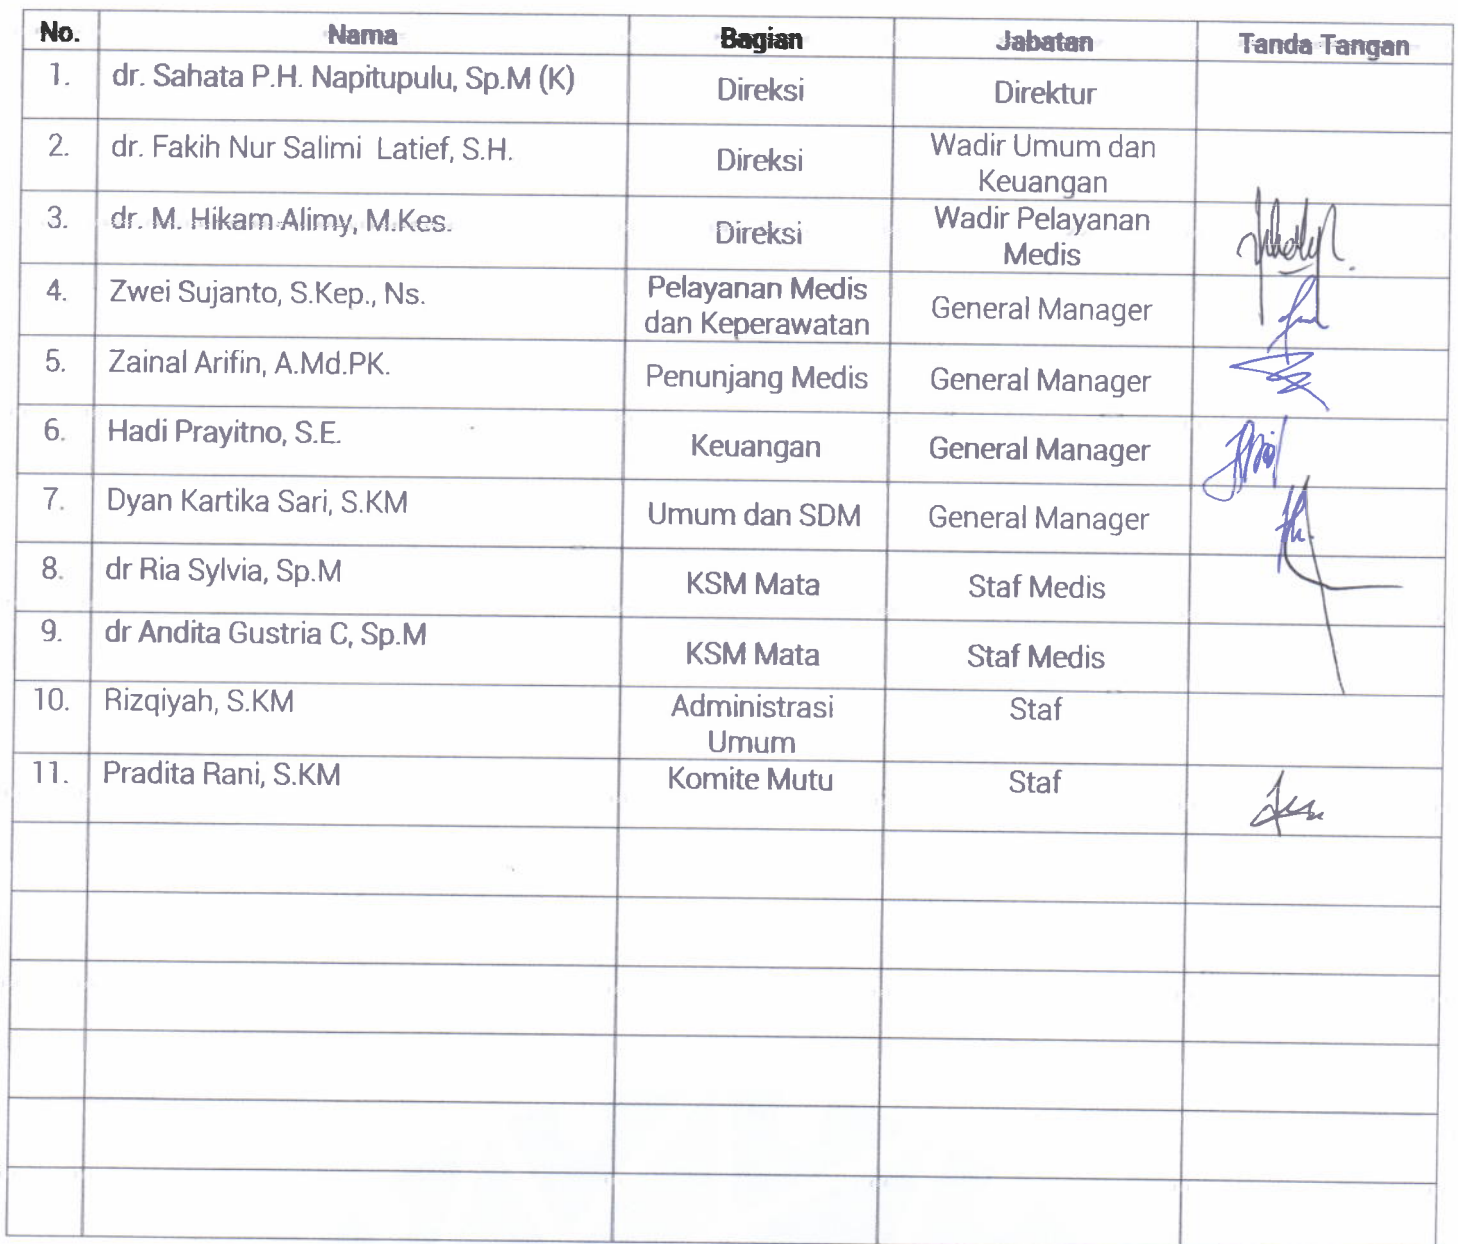 No. Nama Bagian Jabatan Tanda Tangan
1. dr. Sahata P.H. Napitupulu, Sp.M (K) Direksi Direktur
2. dr. Fakih Nur Salimi Latief, S.H. Direksi Wadir Umum dan
Keuangan
3. dr. M. Hikam Alimy, M.Kes. Direksi Wadir Pelayanan
Medis
4. Zwei Sujanto, S.Kep., Ns. Pelayanan Medis General Manager
dan Keperawatan
5. Zainal Arifin, A.Md.PK. Penunjang Medis General Manager
6. Hadi Prayitno, S.E. Keuangan General Manager
7. Dyan Kartika Sari, S.KM Umum dan SDM General Manager
8. dr Ria Sylvia, Sp.M KSM Mata Staf Medis
9. dr Andita Gustria C, Sp.M KSM Mata Staf Medis
10. Rizqiyah, S.KM Administrasi Staf
Umum
11. Pradita Rani, S.KM Komite Mutu Staf